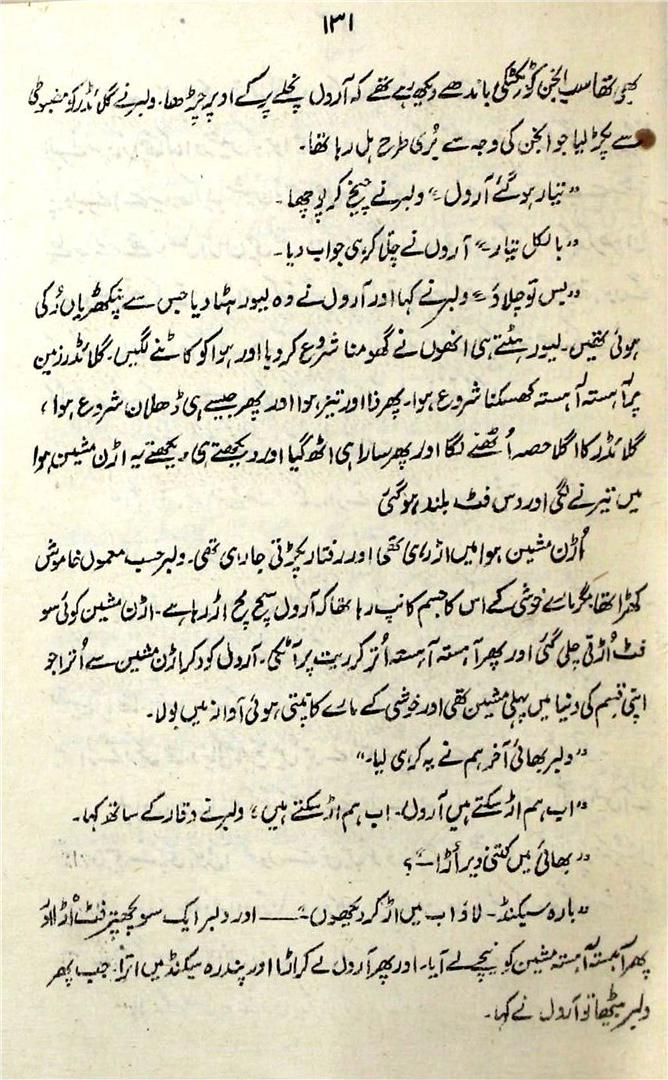 ۱۳۱
تھا سب انجن کو ٹکٹکی باندھے دیکھ رہے تھے کہ آرول نچلے پر کے اوپر چڑھا۔ ولبر نے گلائڈر کو مضبوطی
سے پکڑ لیا جو انجن کی وجہ سے بُری طرح ہل رہا تھا۔
"تیار ہو گئے آرول" ولبر نے چیخ کر پوچھا۔
"بالکل تیار" آرول نے چلّا کر ہی جواب دیا۔
"بس تو چلاؤ" ولبر نے کہا اور آرول نے وہ لیور ہٹا دیا جس سے پنکھڑیاں رُکی
ہوئی تھیں۔ لیور ہٹتے ہی انھوں نے گھومنا شروع کر دیا اور ہوا کو کاٹنے لگیں۔ گلائڈر زمین
پر آہستہ آہستہ کھسکنا شروع ہوا۔ پھر ذرا اور تیز ہوا اور پھر جیسے ہی ڈھلان شروع ہوا،
گلائڈر کا اگلا حصہ اُٹھنے لگا اور پھر سارا ہی اٹھ گیا اور دیکھتے ہی دیکھتے یہ اڑن مشین ہوا
میں تیرنے لگی اور دس فٹ بلند ہو گئی
اُڑن مشین ہوا میں اڑ رہی تھی اور رفتار پکڑتی جا رہی تھی۔ ولبر حسب معمول خاموش
کھڑا تھا مگر مارے خوشی کے اس کا جسم کانپ رہا تھا کہ آرول سچ مچ اڑ رہا ہے۔ اڑن مشین کوئی سو
فٹ اُڑتی چلی گئی اور پھر آہستہ آہستہ اُتر کر ریت پر آ ٹکی۔ آرول کود کر اڑن مشین سے اُترا جو
اپنی قسم کی دنیا میں پہلی مشین تھی اور خوشی کے مارے کانپتی ہوئی آواز میں بولا۔
"ولبر بھائی آخر ہم نے یہ کر ہی لیا۔"
"اب ہم اڑ سکتے ہیں آرول۔ اب ہم اڑ سکتے ہیں" ولبر نے وقار کے ساتھ کہا۔
"بھائی میں کتنی دیر اُڑا"؟
"بارہ سیکنڈ۔ لاؤ اب میں اڑ کر دیکھوں" ـــــ اور ولبر ایک سو پچھتر فٹ اُڑا اور
پھر آہستہ آہستہ مشین کو نیچے لے آیا۔ اور پھر آرول لے کر اڑا اور پندرہ سیکنڈ میں اترا۔ جب پھر
ولبر بیٹھا تو آرول نے کہا۔